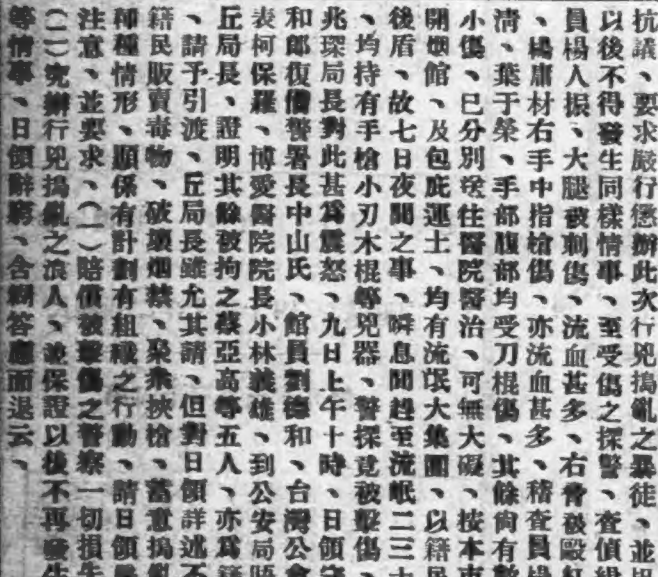 抗議、要求嚴行懲辦此次行兇搗亂之暴徒、並
以後不得發生同樣情事、至受傷之探警、查偵緝
員楊人振、大腿被刺傷、流血甚多、右脅被毆紅
、楊庸材右手中指槍傷、亦流血甚多、稽查員
清、葉于榮、手部腹部均受刀棍傷、其餘尙有數
小傷、已分別送住醫院醫治、可無大礙、按本市
開烟館、及包庇運土、均有流氓大集團、以籍民
後盾、故七日夜間之事、瞬息間趕至流氓二三十
、均持有手槍小刃木棍等兇器、警探竟被擊傷、
兆琛局長對此甚爲震怒、九日上午十時、日領守
和郎復偕警署長中山氏、館員劉德和、台灣公會
表柯保羅、博愛醫院院長小林義雄、到公安局晤
丘局長、證明其餘被拘之蔡亞高等五人、亦爲籍
、請予引渡、丘局長雖允其請、但對日領詳述不
籍民販賣毒物、破壞烟禁、聚衆挾槍、蓄意搗亂
種種情形、顯係有計劃有組織之行動、請日領
注意、並要求、(一)賠償被擊傷之警察一切損失
(二)究辦行兇搗亂之浪人、並保證以後不再發生
等情事、日領辭窮、含糊答應而退云、